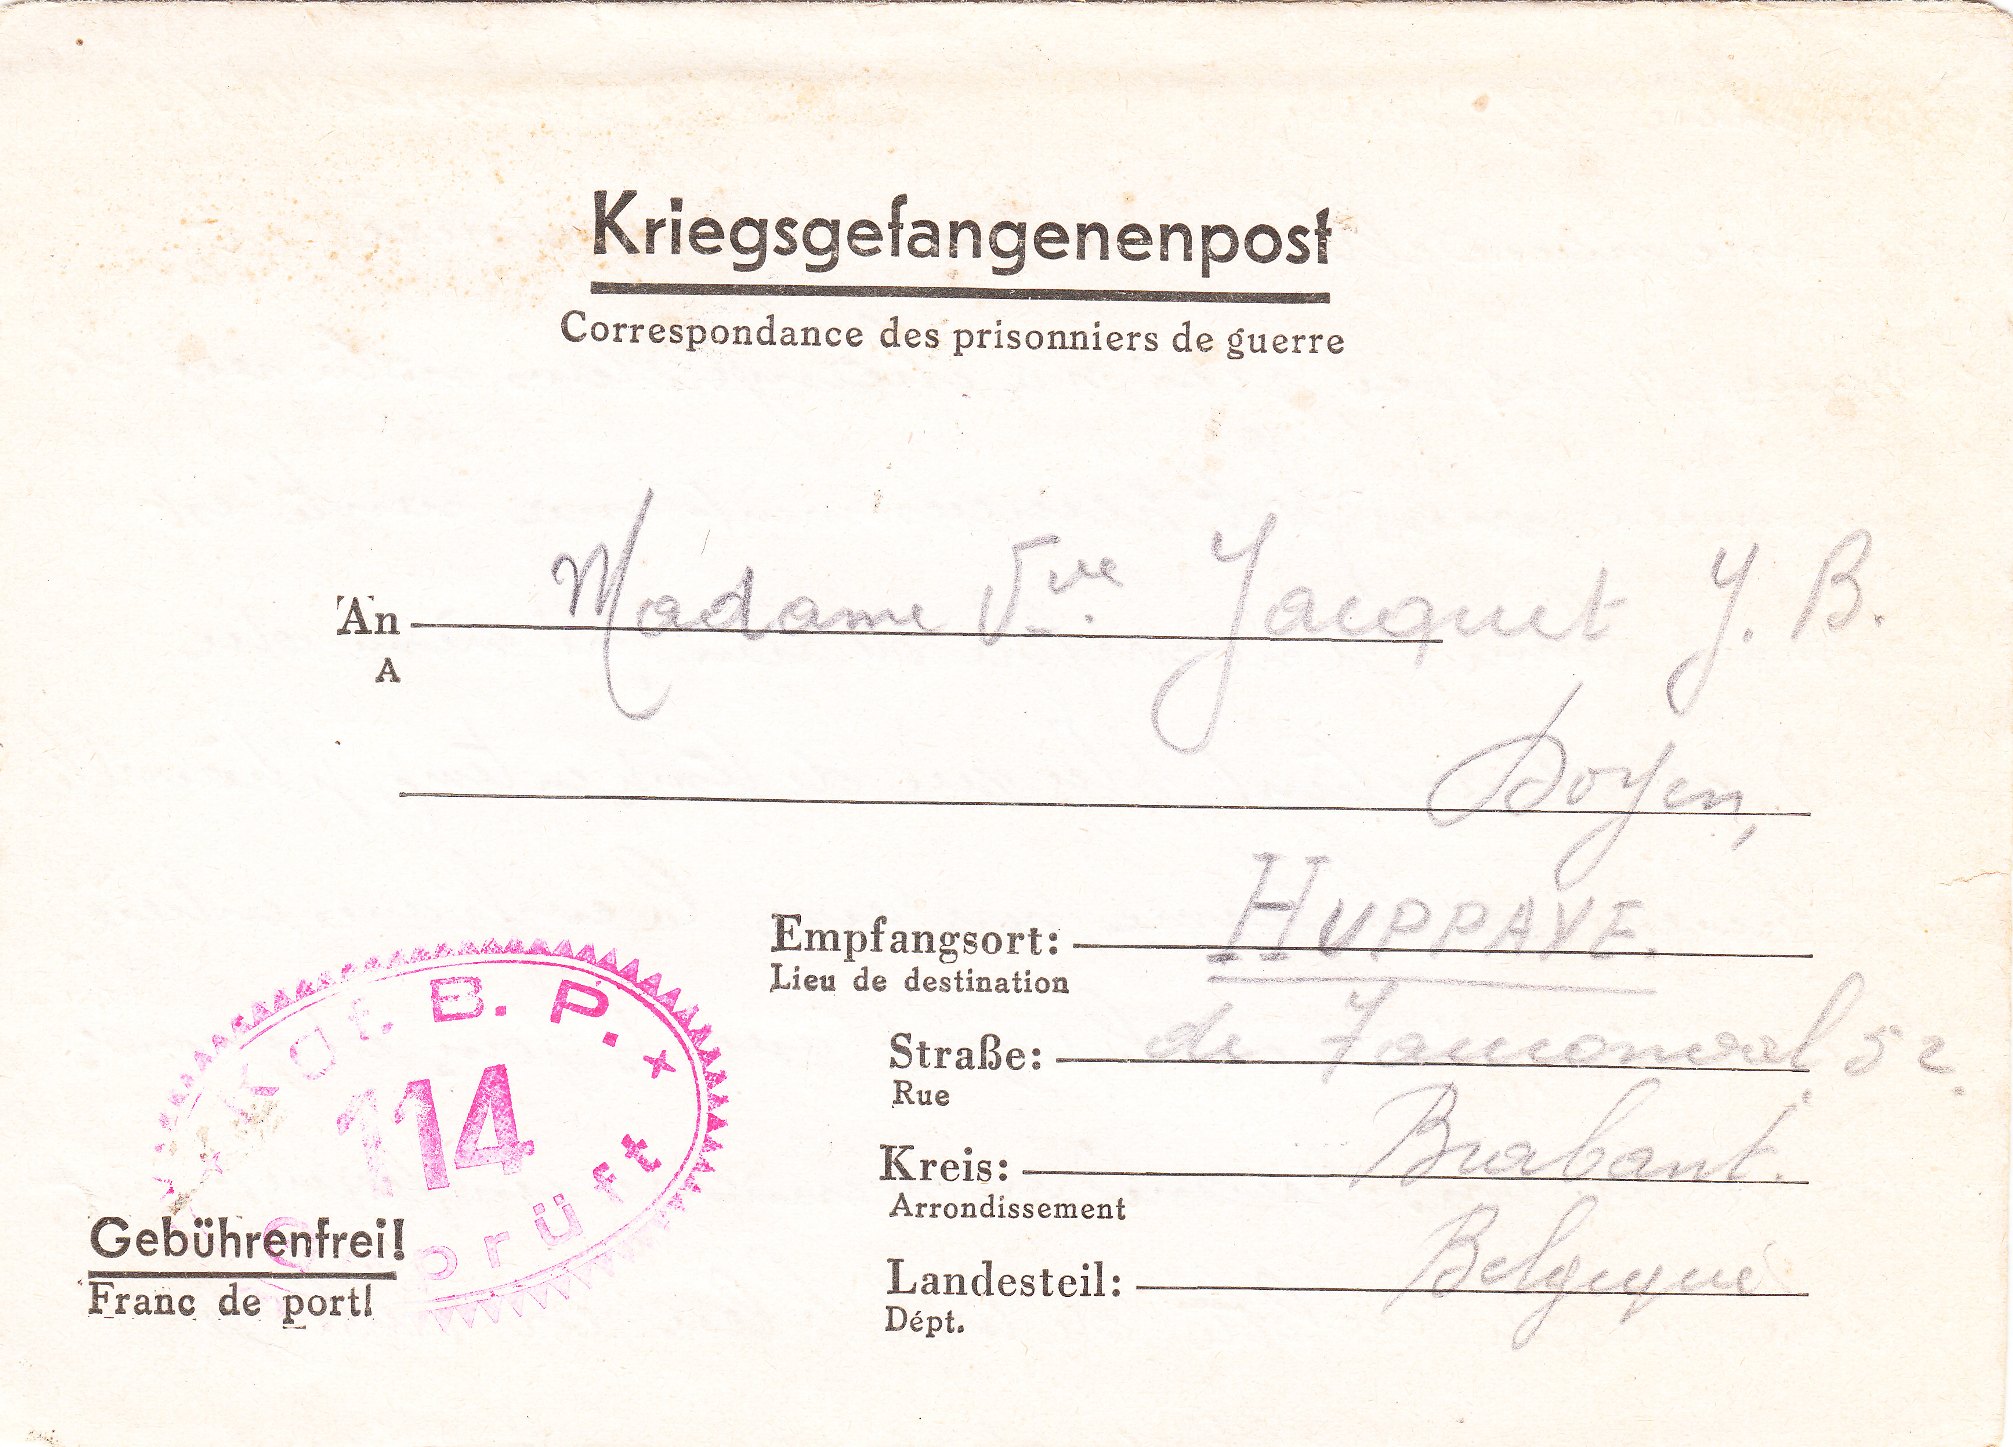 Kriegsgefangenenpost
Correspondance des prisonniers de guerre
An Madame Vve Jacquet J. B.
A
Doyen,
Empfangsort: HUPPAYE.
Lieu de destination
Straße: de 52.
Rue
Kreis: Brabant.
Arrondissement
Landesteil: Belgique
Dépt.
Gebührenfrei!
Franc de port!
Kgf. B. P.
114
prüft